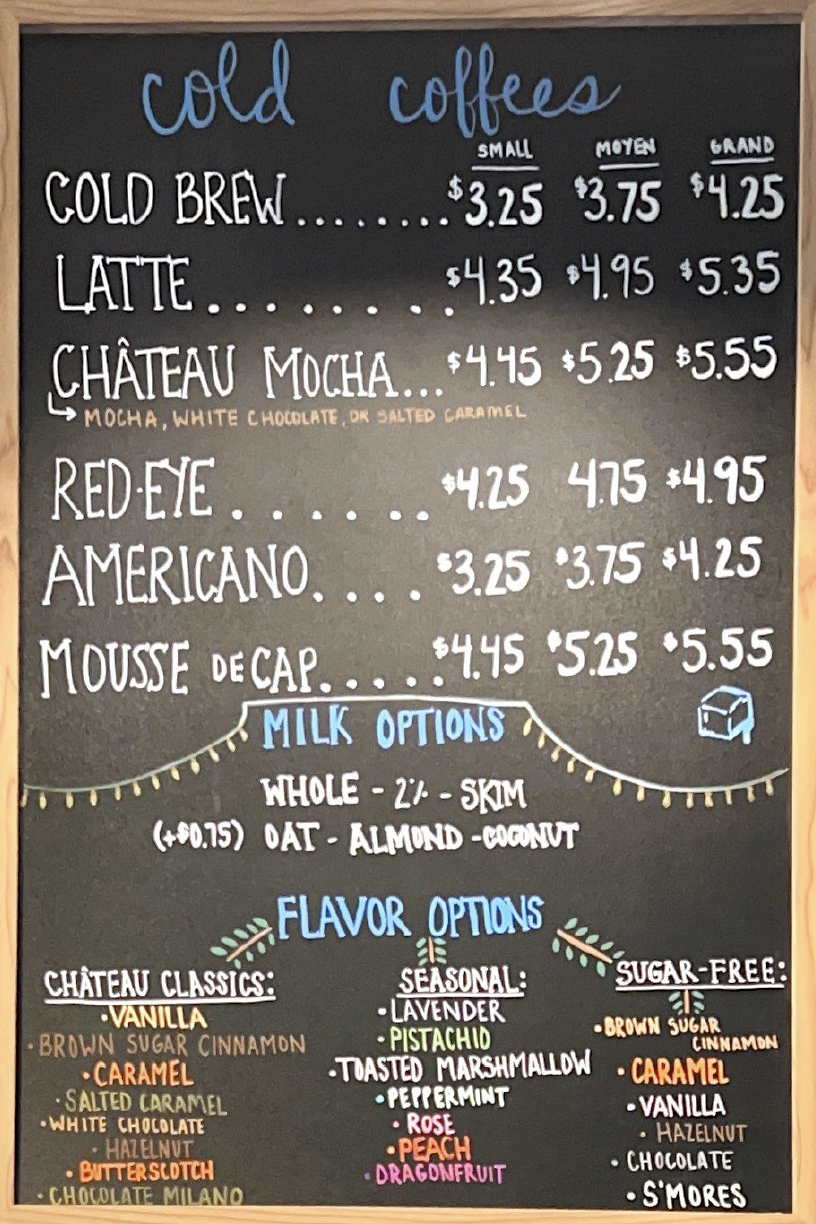 cold coffees
SMALL MOYEN GRAND
COLD BREW........ $3.25 $3.75 $4.25
LATTE........ $4.35 $4.95 $5.35
CHÂTEAU MOCHA... $4.45 $5.25 $5.55
MOCHA, WHITE CHOCOLATE, OR SALTED CARAMEL
RED·EYE....... $4.25 4.75 $4.95
AMERICANO.... $3.25 $3.75 $4.25
MOUSSE DE CAP..... $4.45 $5.25 $5.55
MILK OPTIONS
WHOLE - 2% - SKIM
(+$0.75) OAT - ALMOND - COCONUT
FLAVOR OPTIONS
CHÂTEAU CLASSICS:
·VANILLA
·BROWN SUGAR CINNAMON
·CARAMEL
·SALTED CARAMEL
·WHITE CHOCOLATE
·HAZELNUT
·BUTTERSCOTCH
·CHOCOLATE MILANO
SEASONAL:
·LAVENDER
·PISTACHIO
·TOASTED MARSHMALLOW
·PEPPERMINT
·ROSE
·PEACH
·DRAGONFRUIT
SUGAR-FREE:
·BROWN SUGAR
CINNAMON
·CARAMEL
·VANILLA
·HAZELNUT
·CHOCOLATE
·S'MORES